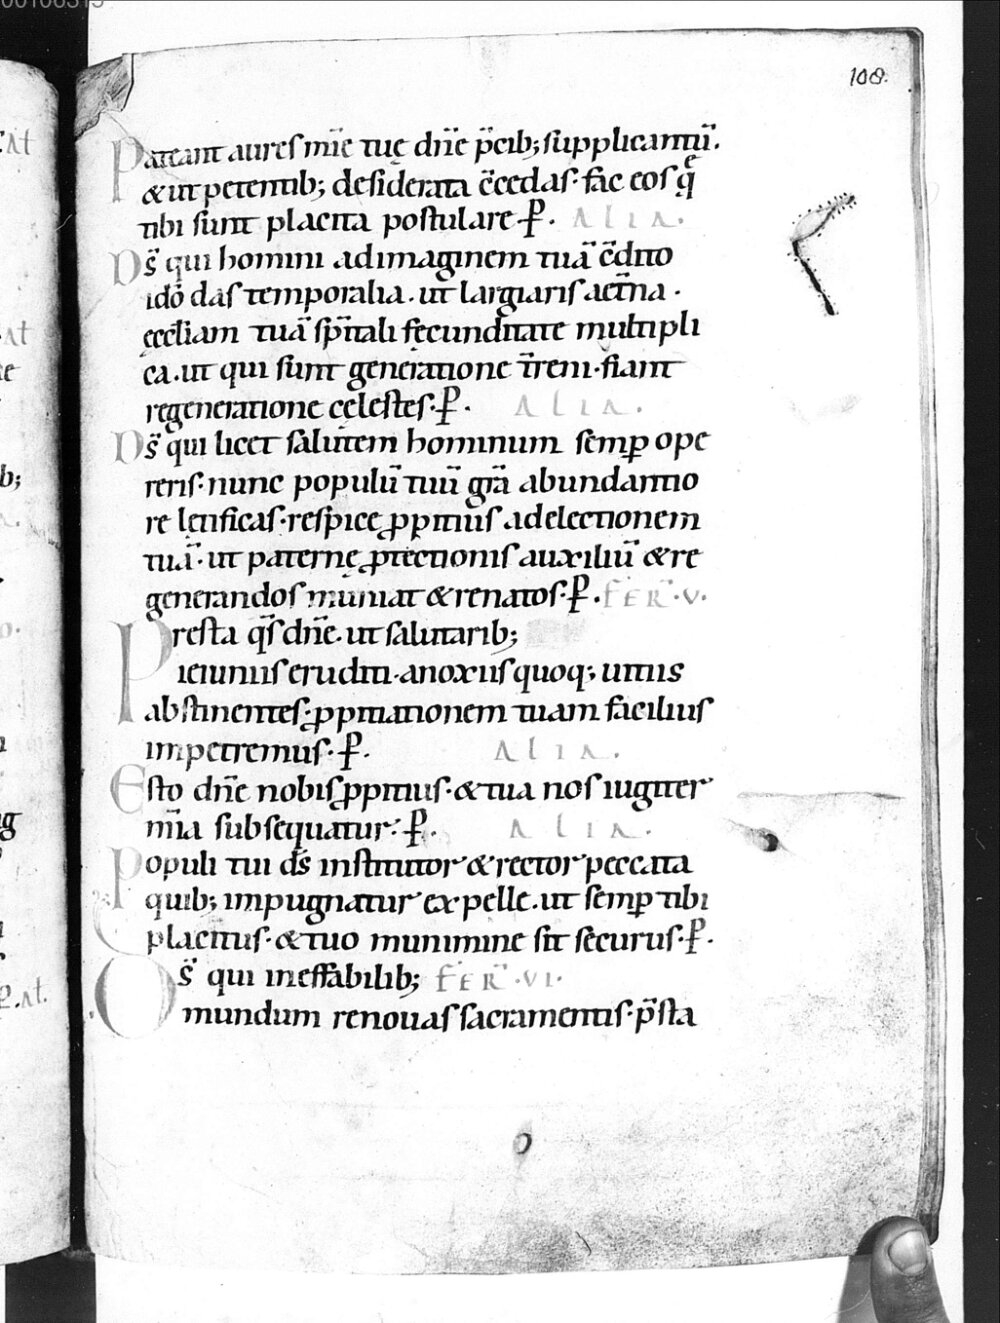 108.
Pateant aures mīe tuę dn̄e p̄cib; supplicantiū.
&ut petentib; desiderata c̄cedas· fac eos q̄
tibi sunt placita postulare P̄. ALIA.
Ds̄ qui homini ad imaginem tuā c̄dito
idō das temporalia. ut largiaris aet̄na.
ęccl̄iam tuā sp̄itali fęcunditate multipli
ca. ut qui sunt generatione t̄reni· fiant
regeneratione cęlestes· P̄. ALIA.
Ds̄ qui licet salutem hominum semꝑ ope
reris· nunc populū tuū grā abundantio
re letificas· respice ꝓpitius ad electionem
tuā· ut paternę ꝓtectionis auxiliū &re
generandos muniat &renatos· P̄. FER̄·V·
Presta qs̄ dn̄e. ut salutarib;
ieiuniis eruditi· a noxiis quoq; uitiis
abstinentes· ꝓpitiationem tuam facilius
impetremus· P̄. ALIA.
Esto dn̄e nobis ꝓpitius· &tua nos iugiter
mīa subsequatur· P̄. ALIA.
Populi tui ds̄ institutor &rector peccata
quib; impugnatur expelle. ut semꝑ tibi
placitus· &tuo munimine sit securus· P̄.
Ds̄ qui ineffabilib; FER̄·VI·
mundum renouas sacramentis· p̄sta